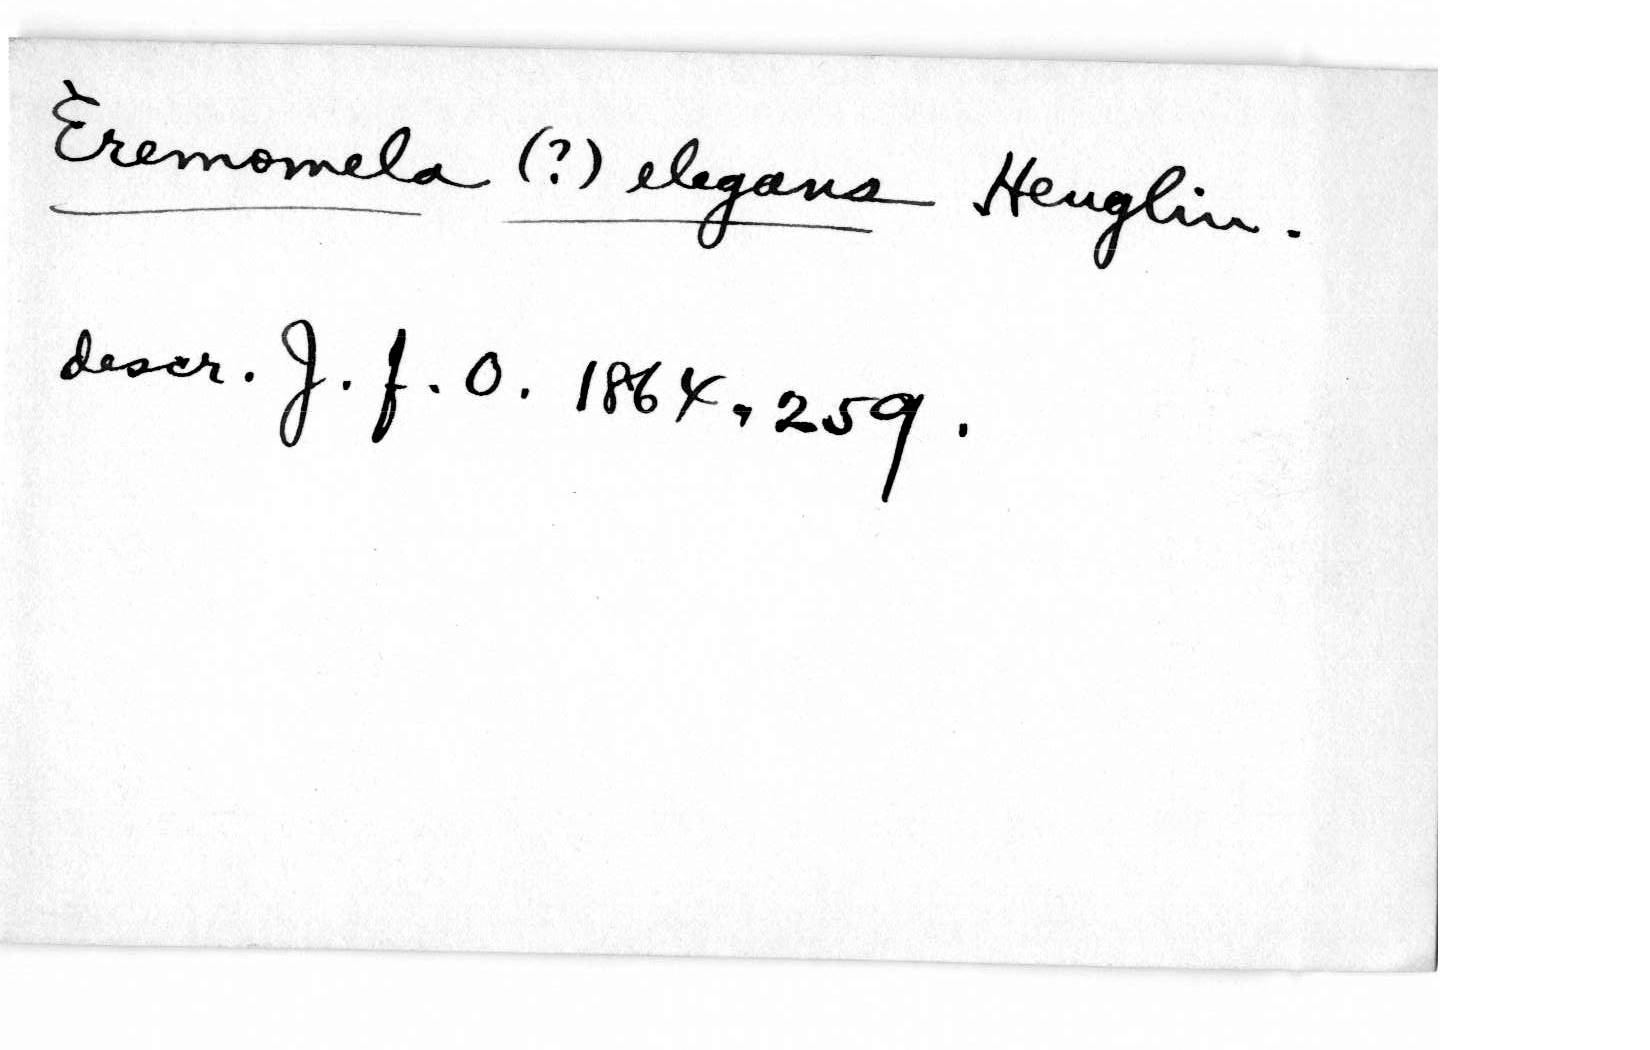 Eremomela (?) elegans Heuglin.
descr. J. f. O. 1864, 259.